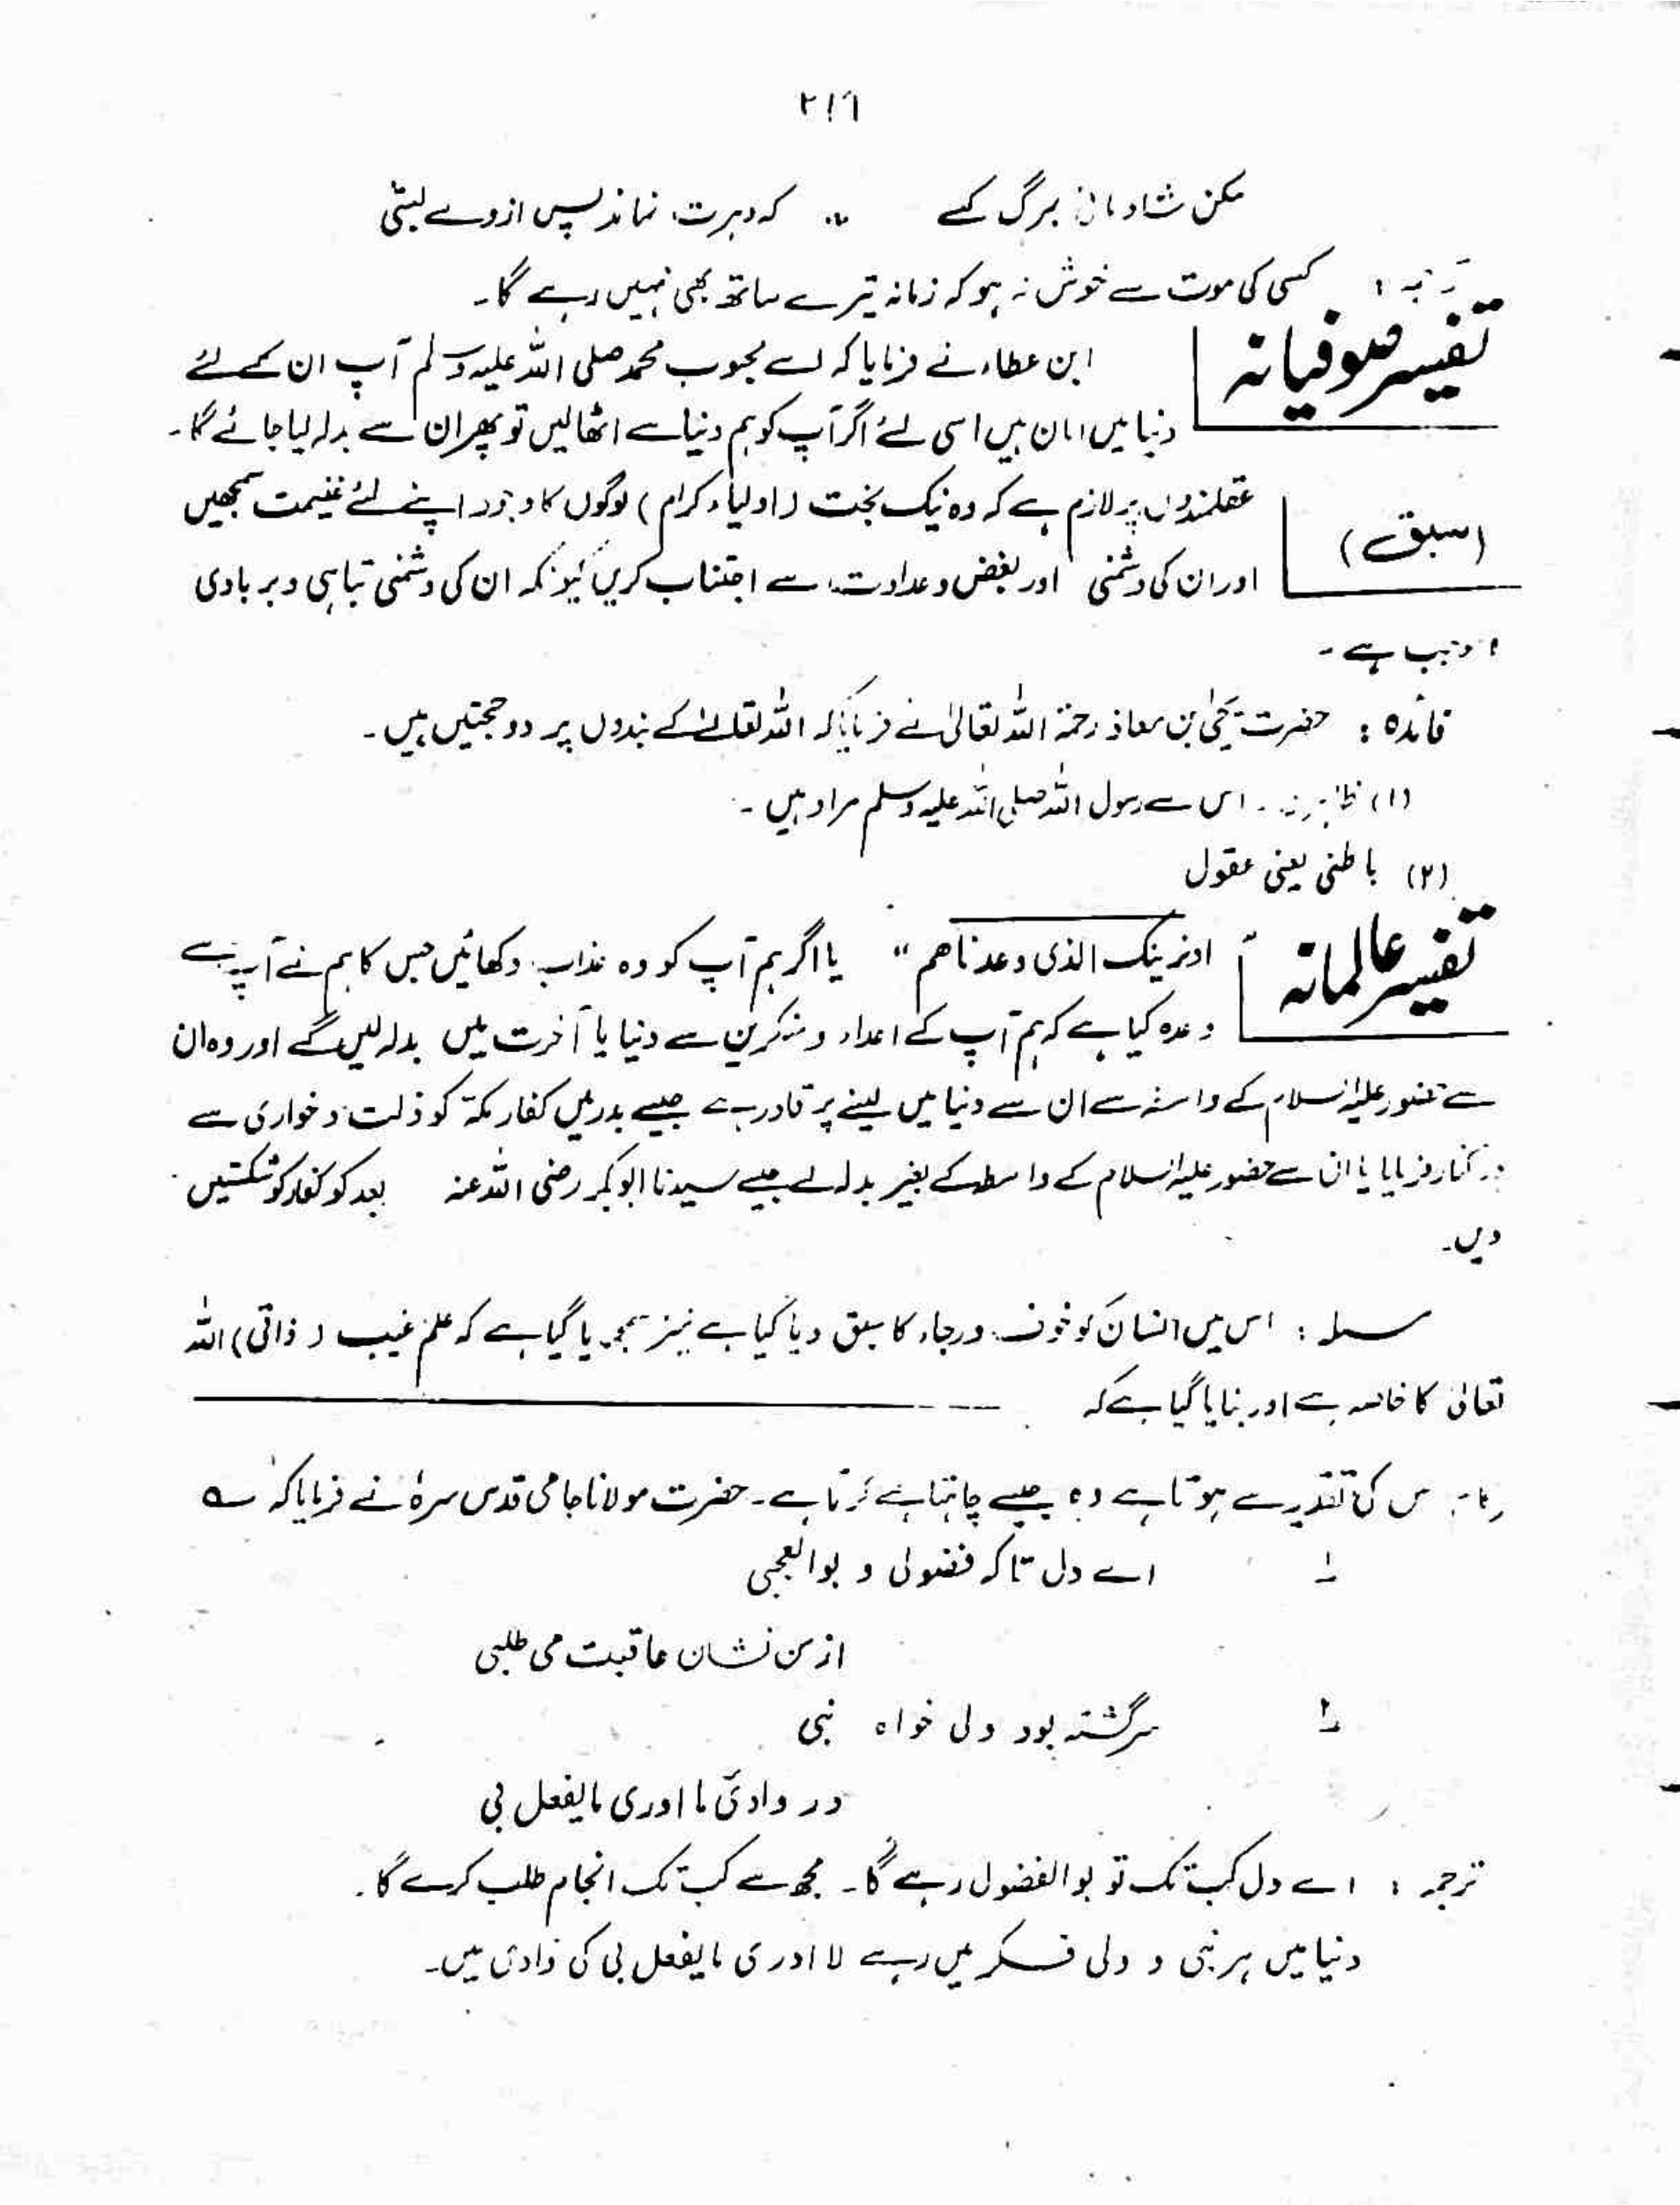 ۲۱۶
مکن شادمانی بمرگ کسے ؞ کہ دہرت نماند پس از وے بسی
ترجمہ : کسی کی موت سے خوش نہ ہو کہ زمانہ تیرے ساتھ بھی نہیں رہے گا۔
تفسیر صوفیانہ
ابن عطاء نے فرمایا کہ اے محبوب محمد صلی اللہ علیہ وسلم آپ ان کے لئے
دنیا میں امان ہیں اسی لئے اگر آپ کو ہم دنیا سے اٹھالیں تو پھر ان سے بدلہ لیا جائے گا۔
(سبق)
عقلمندوں پر لازم ہے کہ وہ نیک بخت (اولیاء کرام) لوگوں کا وجود اپنے لئے غنیمت سمجھیں
اور ان کی دشمنی اور بغض و عداوت سے اجتناب کریں کیونکہ ان کی دشمنی تباہی و بربادی
ہے۔
فائدہ : حضرت یحیٰ بن معاذ رحمۃ اللہ تعالیٰ نے فرمایا کہ اللہ تعالےٰ کے بندوں پر دو حجتیں ہیں۔
(۱) اس سے رسول اللہ صلی اللہ علیہ وسلم مراد ہیں۔
(۲) باطنی یعنی عقول
تفسیر عالمانہ
" اونرینک الذی وعدناھم " یا اگر ہم آپ کو وہ عذاب دکھائیں جس کا ہم نے آپ سے
وعدہ کیا ہے کہ ہم آپ کے اعداء و منکرین سے دنیا یا آخرت میں بدلہ لیں گے اور وہ ان
سے حضور علیہ السلام کے واسطہ سے ان سے دنیا میں لینے پر قادر ہے جیسے بدر میں کفار مکہ کو ذلت و خواری سے
درکنار فرمایا یا ان سے حضور علیہ السلام کے واسطہ کے بغیر بدلہ لے جیسے سیدنا ابوبکر رضی اللہ عنہ بعد کو کفار کو شکستیں
دیں۔
مسئلہ : اس میں انسان کو خوف و رجاء کا سبق دیا گیا ہے نیز سمجھایا گیا ہے کہ علم غیب (ذاتی) اللہ
تعالیٰ کا خاصہ ہے اور بتایا گیا ہے کہ
کی تقدیر سے ہوتا ہے وہ جیسے چاہتا ہے کرتا ہے۔ حضرت مولانا جامی قدس سرہٗ نے فرمایا کہ ؎
۱ اے دل تا کہ فضولی و بوالعجبی
از من نشان عاقبت می طلبی
۲ سرگشتہ بود ولی خواہ نبی
در وادیٔ ما ادری ما یفعل بی
ترجمہ : اے دل کب تک تو بوالفضول رہے گا۔ مجھ سے کب تک انجام طلب کرے گا۔
دنیا میں ہر نبی و ولی فکر میں رہے لا ادری ما یفعل بی کی وادی میں۔